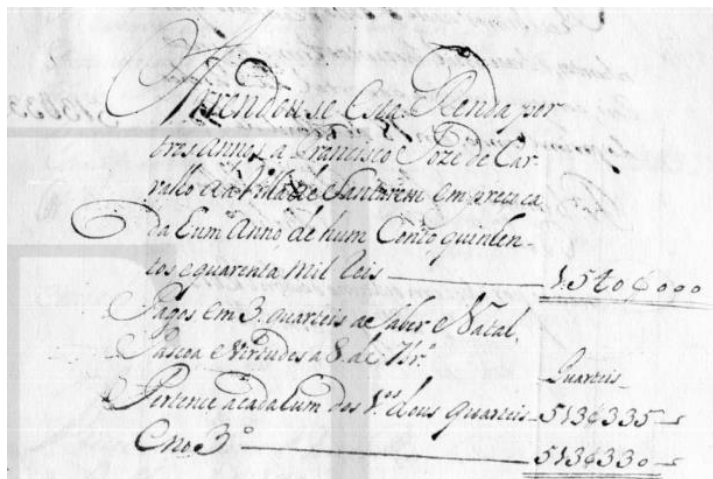 Arrendou se Esta Renda por
tres Annos a Francisco Joze de Car-
valho da Vila de Santarem em preço ca
da hum Anno de hum Conto quinhen-
tos e quarenta mil Reis 1.540$000
Pagos em 3. quarteis a Saber Natal,
Pascoa e Virtudes a 8. de 7br.º
Quarteis
Pertence a cada hum dos 1.os dous Quarteis 513$335
E no 3.º 513$330